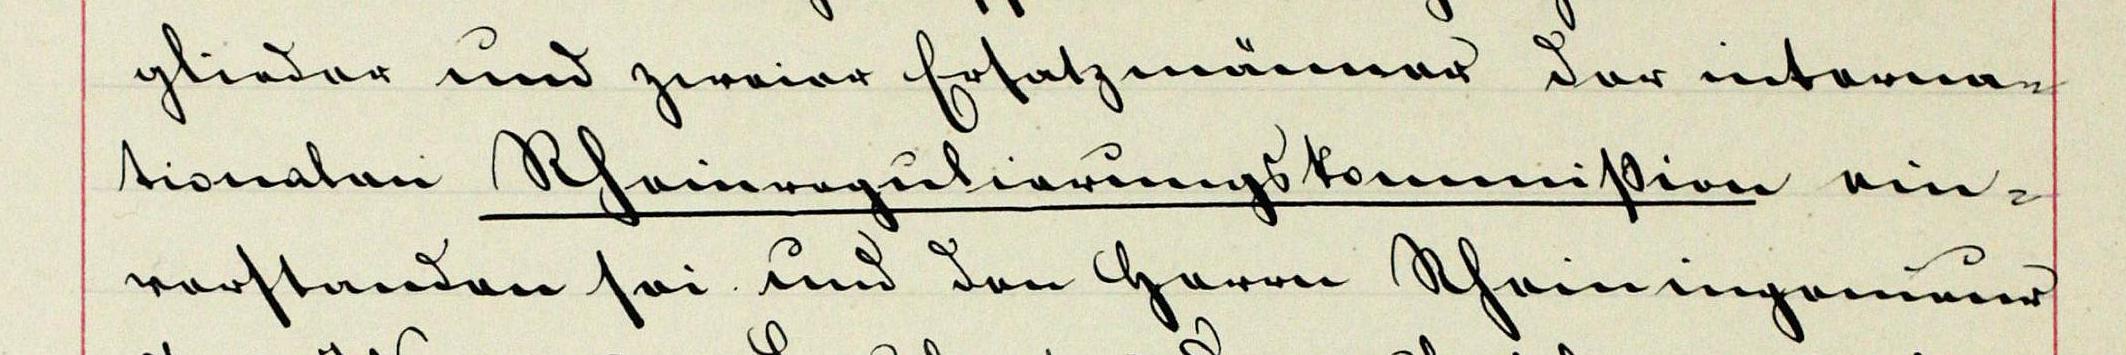 glieder und zweier Ersatzmänner der interna-
tionalen Rheinregulierungskommißion ein-
verstanden sei und den Herrn Rheiningenieur